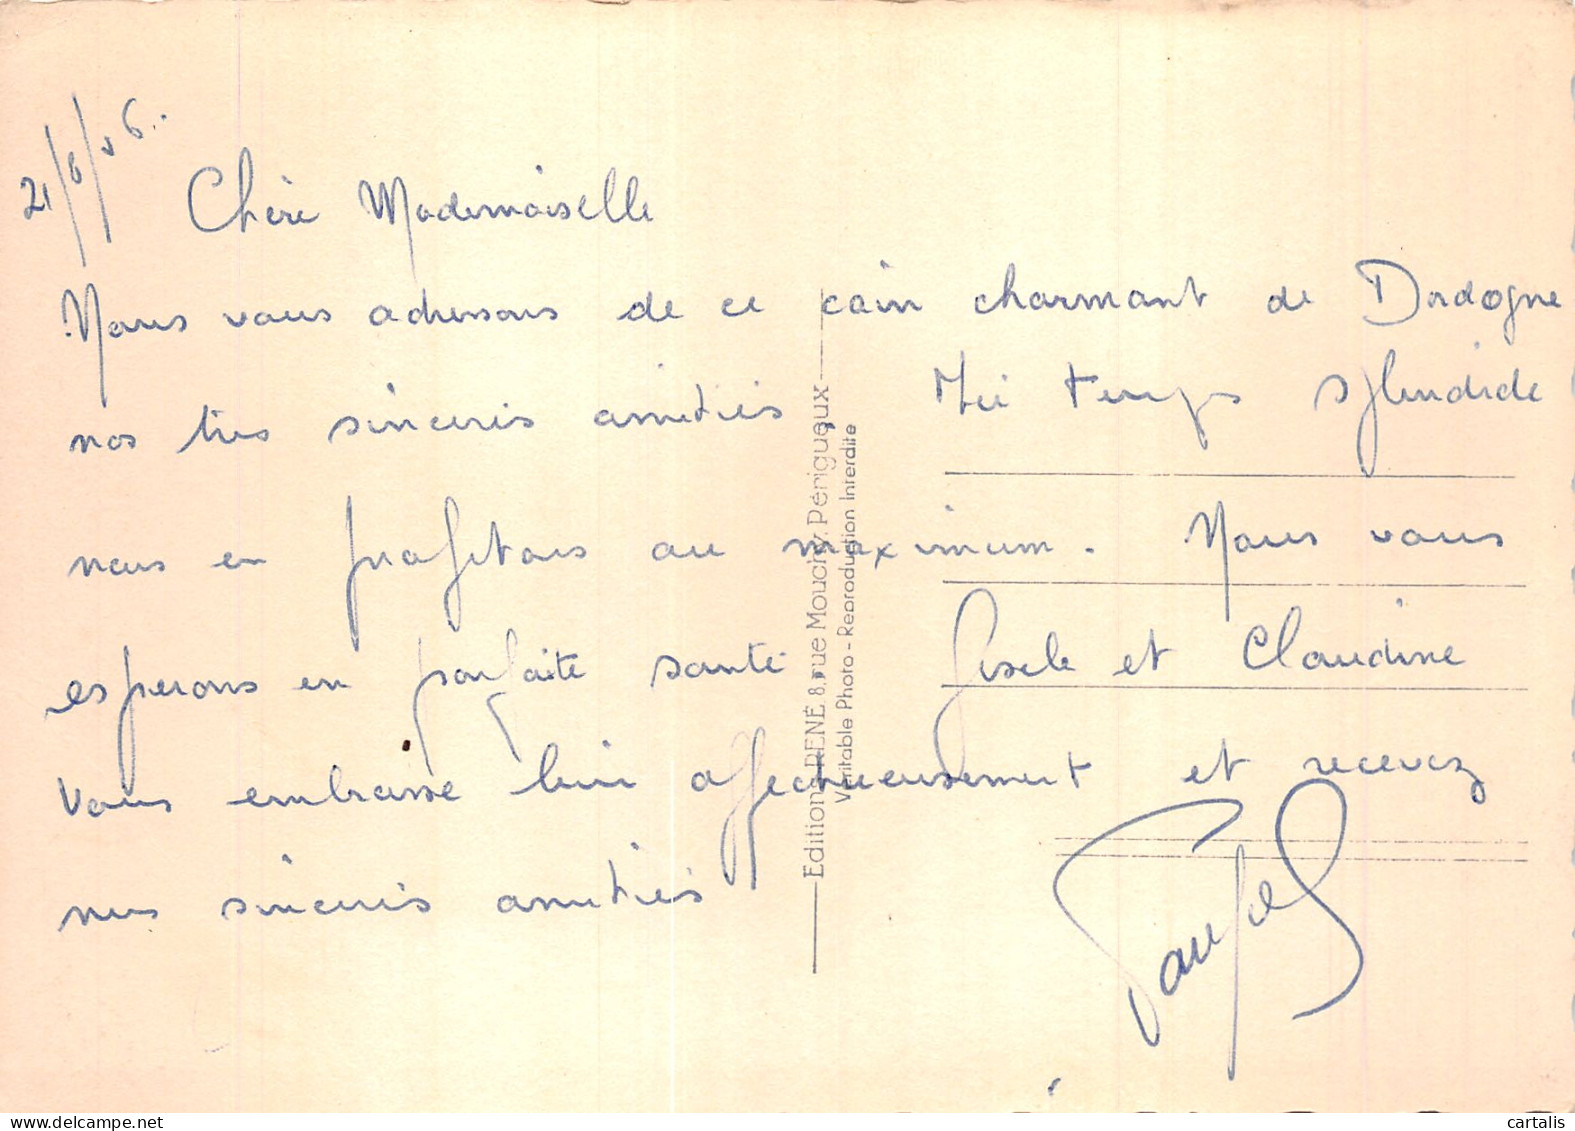 21/8/56.
Chère Mademoiselle
Nous vous adressons de ce coin charmant de Dordogne
nos très sincères amitiés Ici temps splendide
nous en profitons au maximum. Nous vous
esperons en parfaite santé Gisele et Claudine
vous embrasse bien affectueusement et recevez
nos sincères amitiés
Editions RENÉ 8, rue Mouchy, Périgueux
Véritable Photo - Reproduction Interdite
cartalis